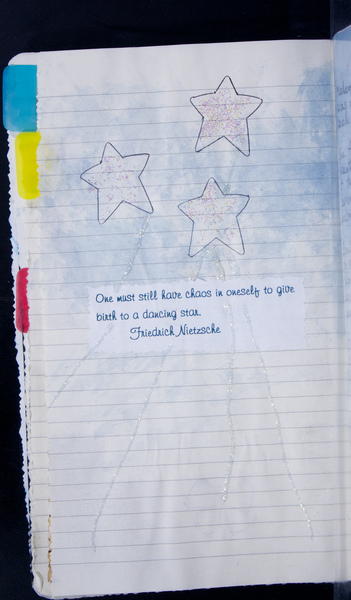 One must still have chaos in oneself to give
birth to a dancing star.
Friedrich Nietzsche